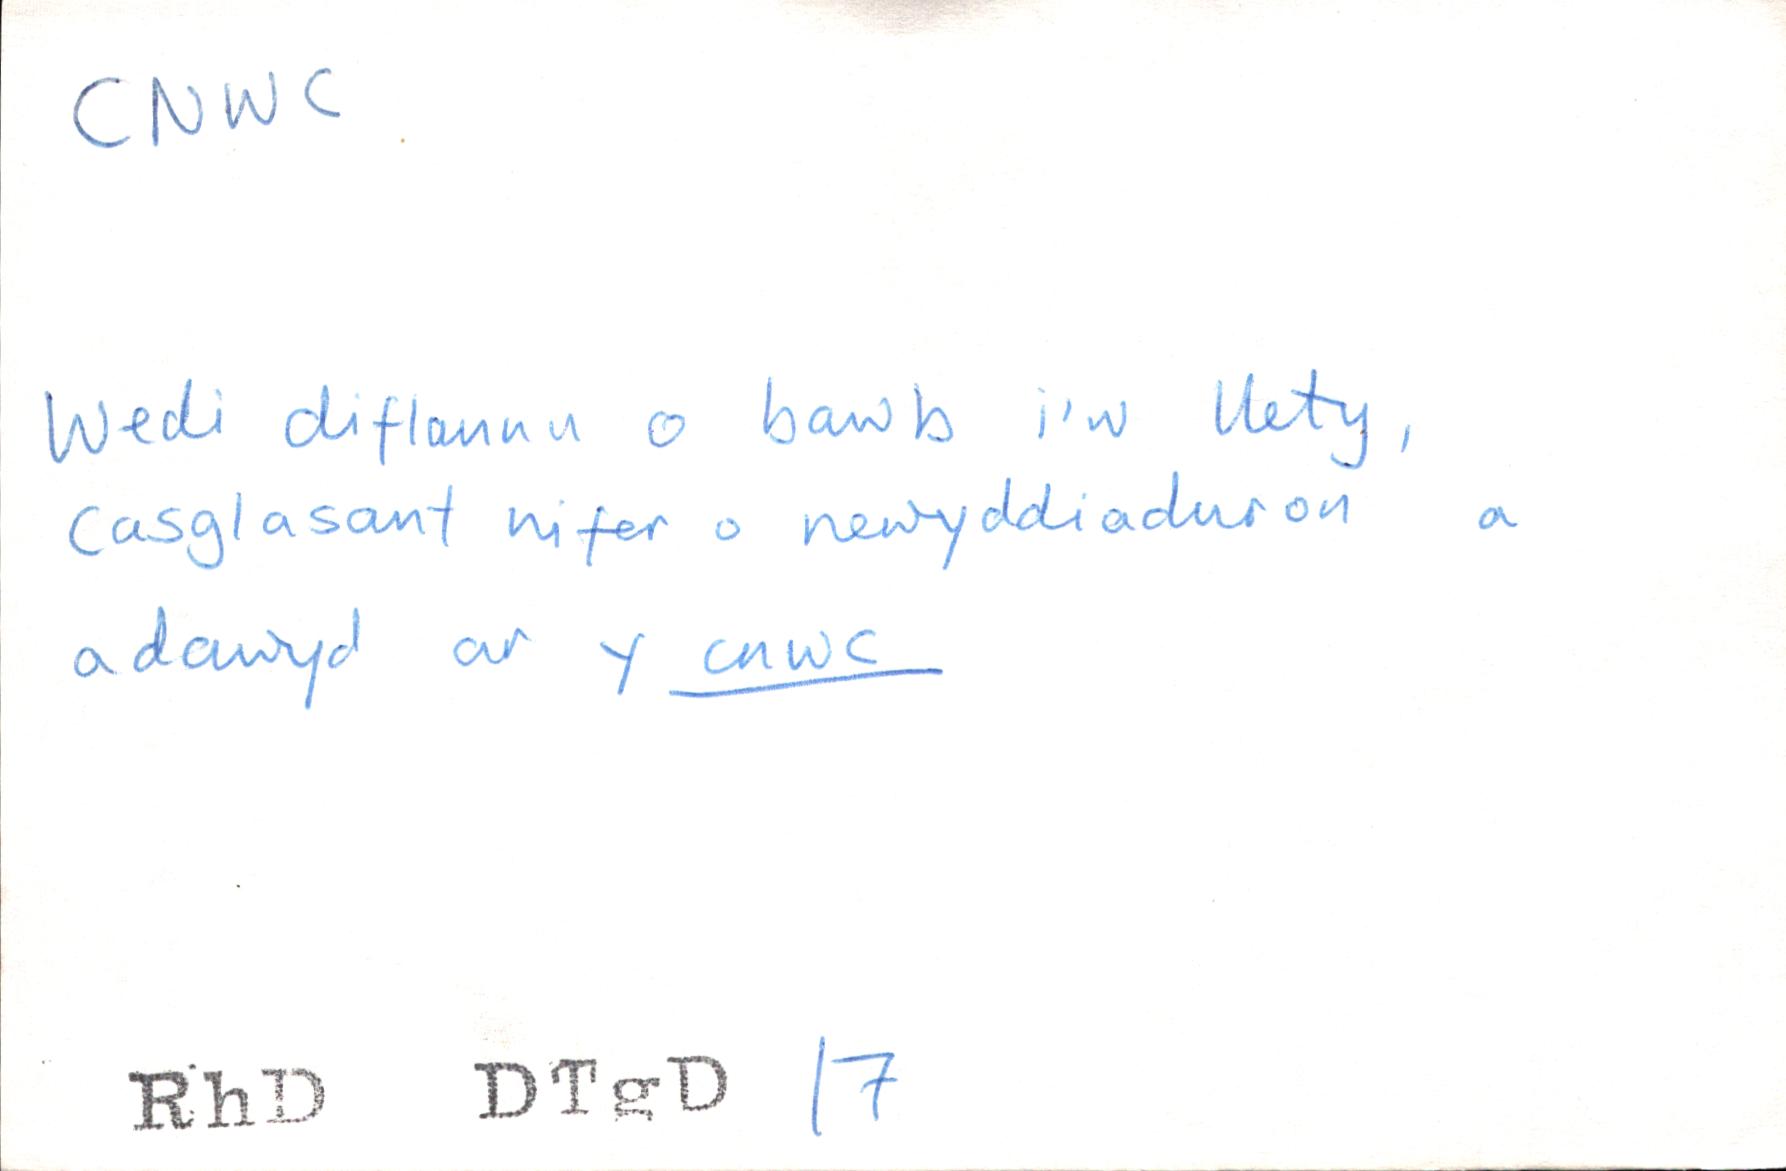 CNWC
Wedi diflannu o bawb i'w llety,
casglasant nifer o newyddiaduron a
adawyd ar y cnwc
RhD DTgD 17